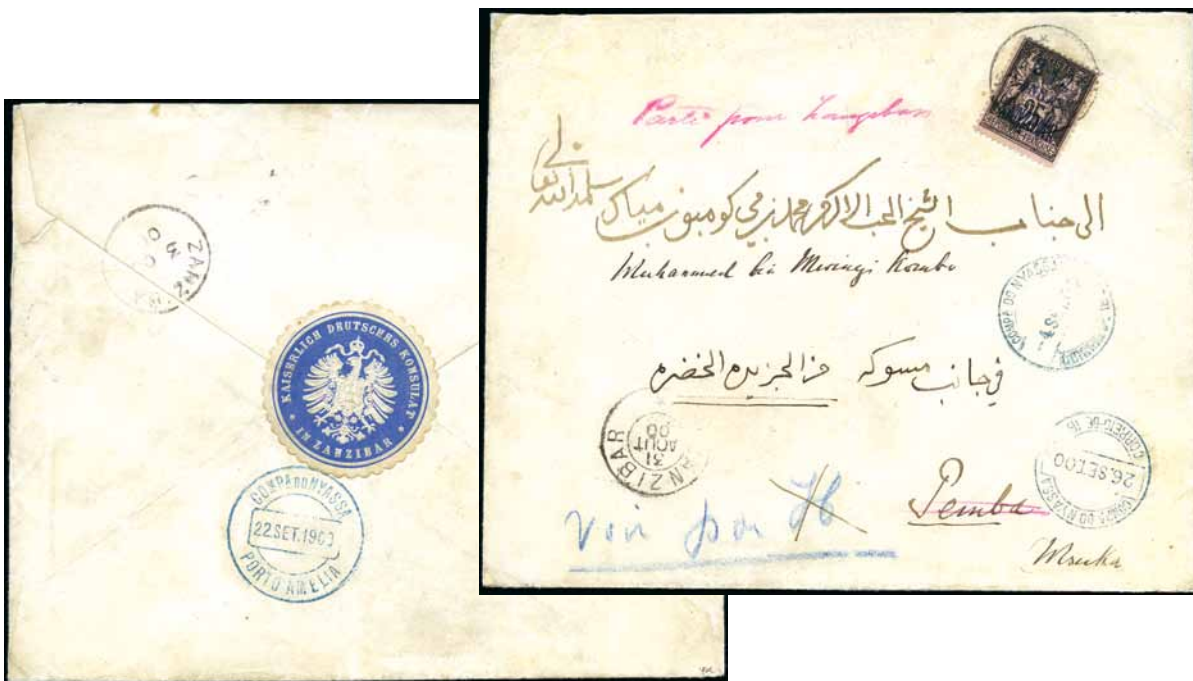 ZANZ
KAISERLICH DEUTSCHES KONSULAT
* IN ZANZIBAR *
COMPA DO NYASSA
22.SET.1900
PORTO AMELIA
Parti pour Zanzibar
الى جناب الشيخ المحب الاكرم محمد بن
سلمه الله تعالى
Muhammed bin Mwinyi Kombo
COMPA DO NYASSA
في جانب مسوكه من الجزيره الخضره
ZANZIBAR
31
AOUT
00
COMPA DO NYASSA
26.SET.00
CORREIO DE IBO
voir par Ib
Pemba
Msuka